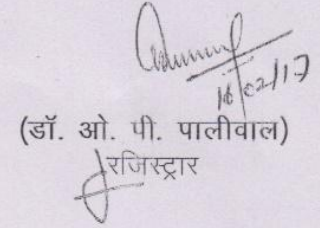 16/02/17
(डॉ. ओ. पी. पालीवाल)
रजिस्ट्रार